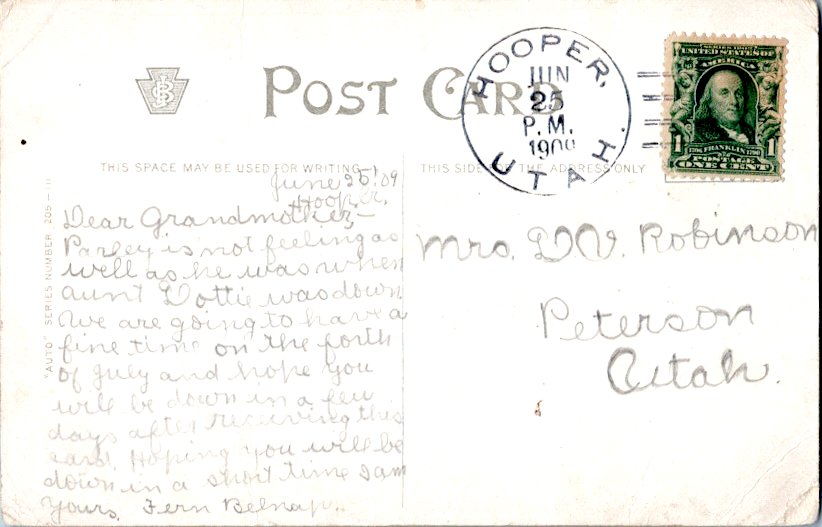 POST CARD
THIS SPACE MAY BE USED FOR WRITING
THIS SIDE THE ADDRESS ONLY
HOOPER,
JUN
25
P.M.
1909
UTAH.
SERIES 1902
UNITED STATES OF
AMERICA
1 FRANKLIN 1
POSTAGE
ONE CENT
"AUTO" SERIES NUMBER 205-III
June 25, 09
Hooper,
Dear Grandmother,—
Parley is not feeling as
well as he was when
aunt Dottie was down
We are going to have a
fine time on the forth
of July and hope you
will be down in a few
days after receiving this
card. Hoping you will be
down in a short time I am
Yours, Fern Belnap.
Mrs. D.V. Robinson
Peterson
Utah.